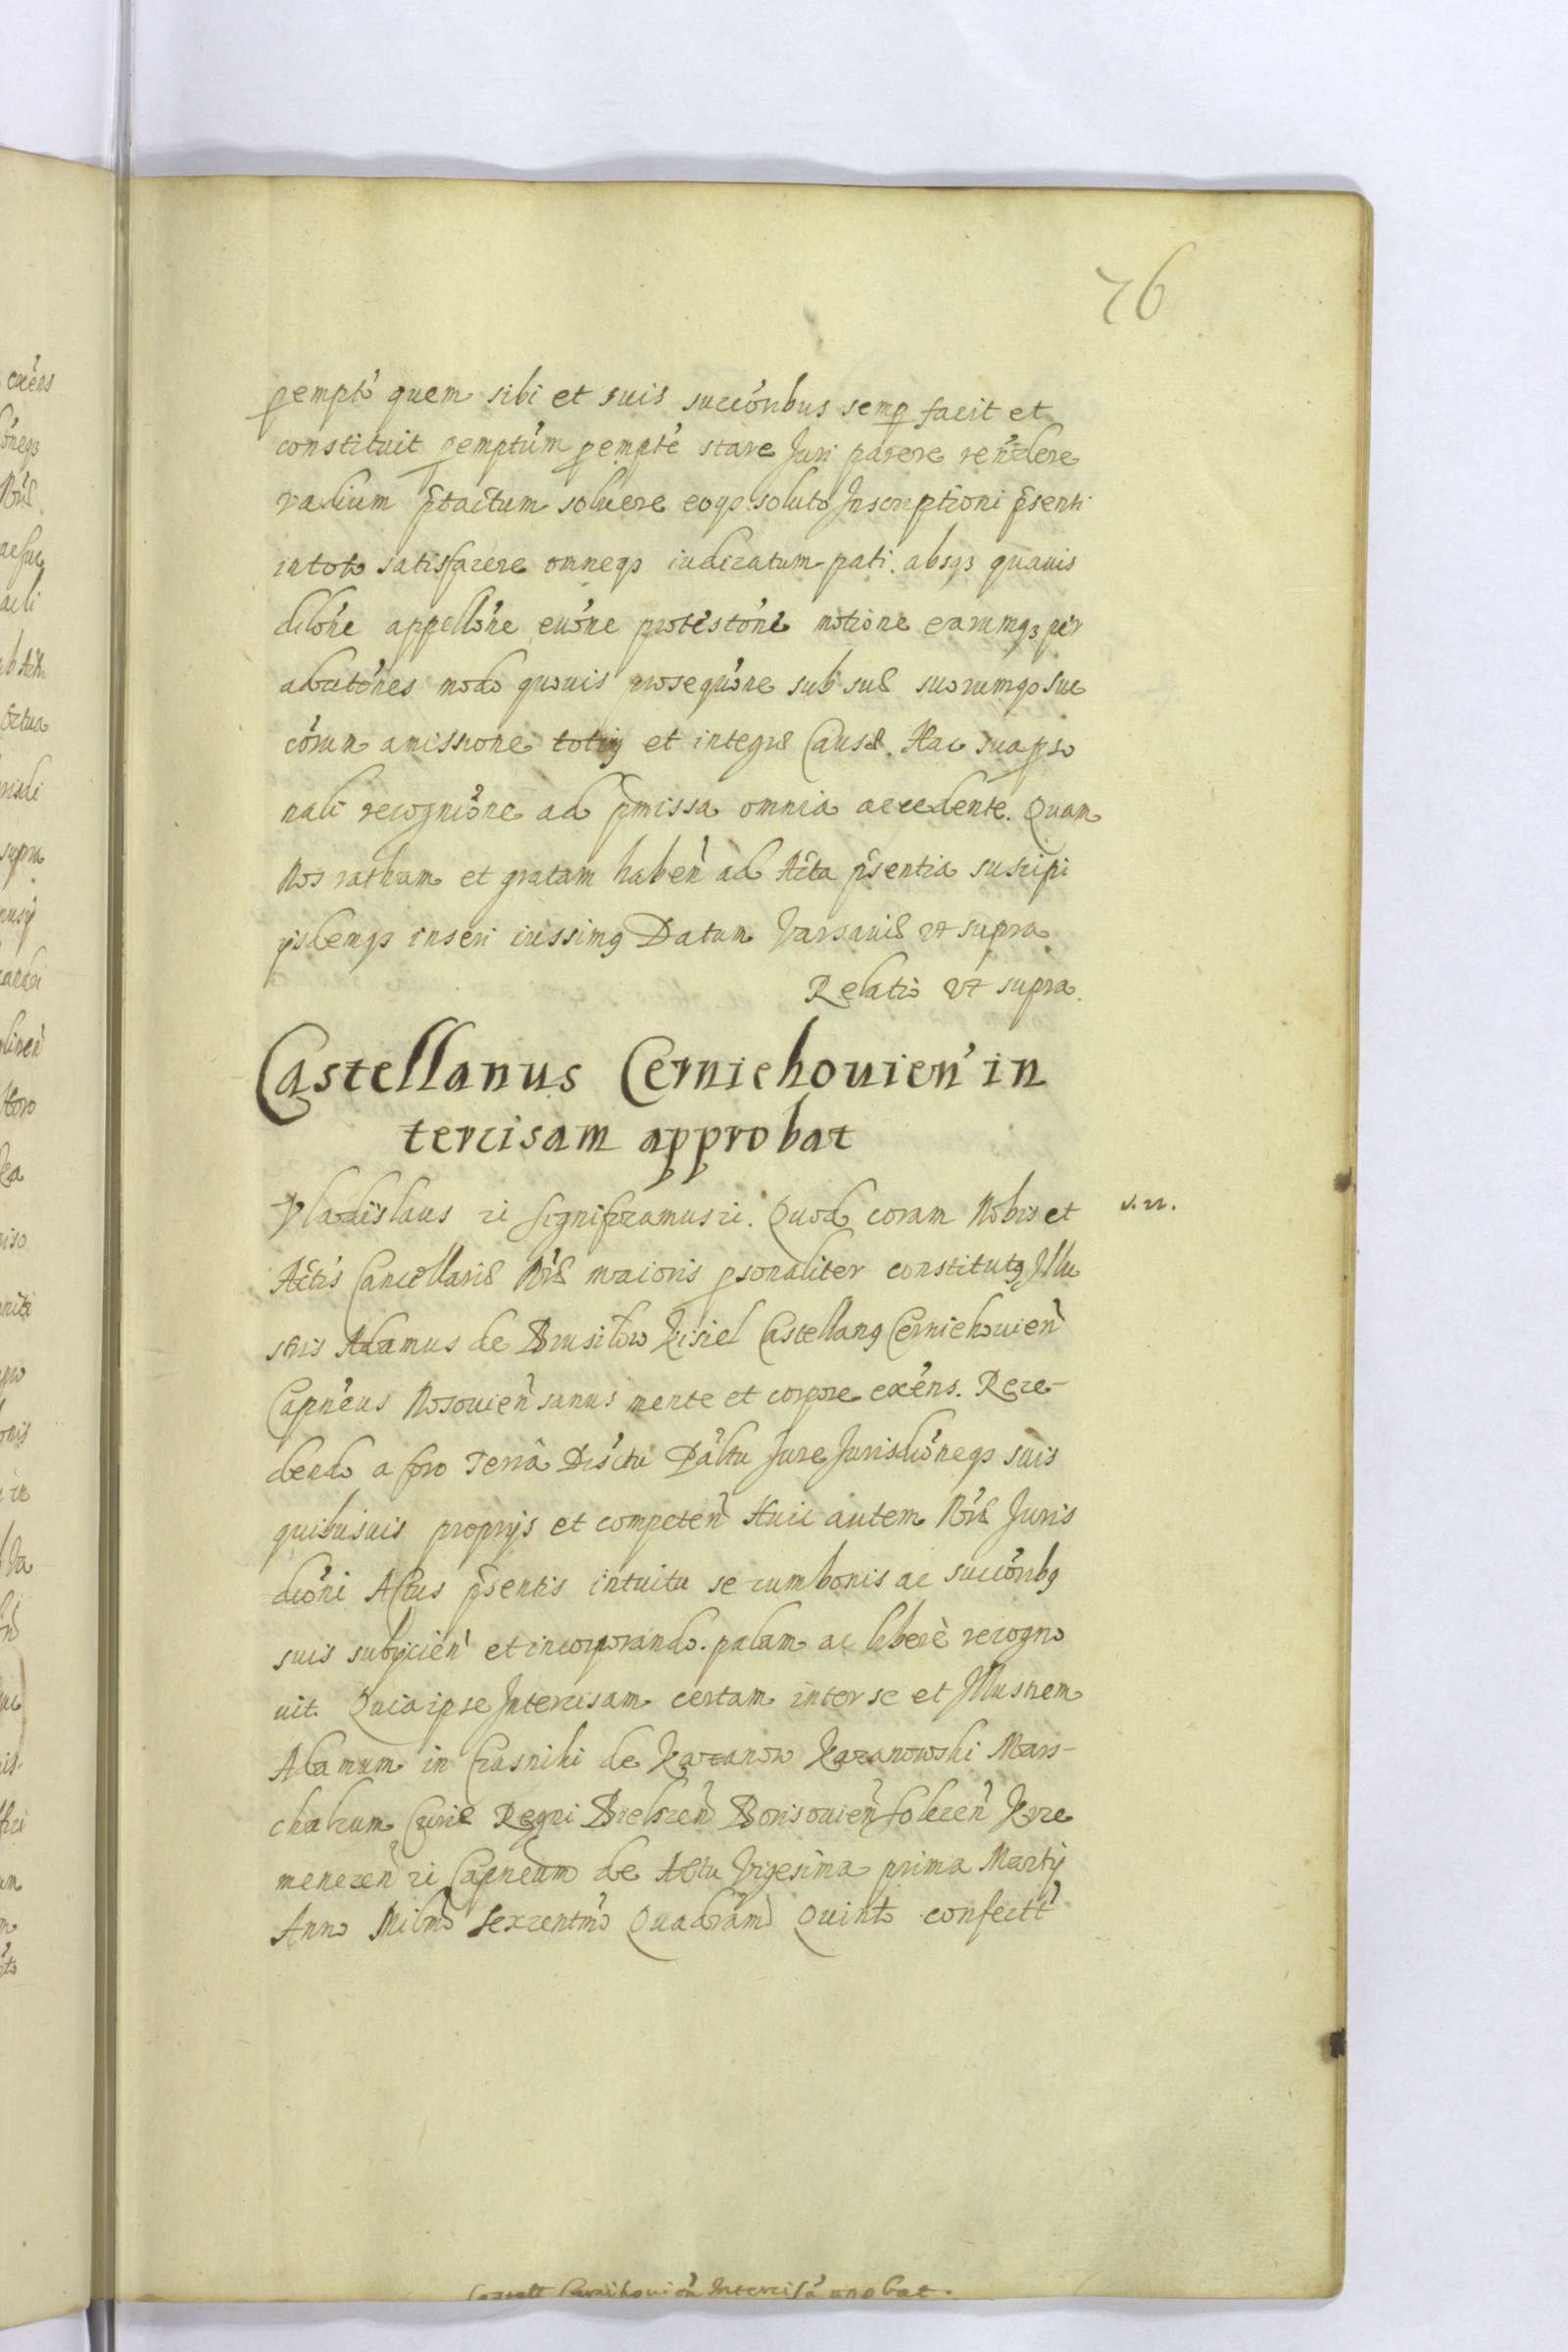 76
pempt' quem sibi et suis succõribus semp facit et
constituit pemptũm pemptẽ stare Juri parere rẽndere
vadium p̃tactum soluere eoq3 soluto Inscriptioni p̃senti
intoto satisfacere omneq3 iudicatum pati. absq3 quauis
dilõne appellõne euõne protestõne motione earumq3 per
modo quouis prosequõne sub suæ suorumq3 suc
cõrum amissione totiq et integræ Causæ. Hac sua pso
nali recogniõne ad p̃missa omnia accedente. Quam
Nos ratham et gratam haben̄ ad Acta p̃sentia suscipi
ijsdemq3 inseri iussimq Datum Varsauiæ vt supra
Relatio vt supra.
Castellanus Cerniehouien' in
tercisam approbat
Vladislaus zc significamus zc. Quod coram Nobis et
s. n.
Actis Cancellariæ Nr̃æ maioris psonaliter constitutq Illu
stris Adamus de Brusilow Kisiel Castellanq Cerniehouien̄
Capñeus Nosouien̄ sanus mente et corpore exẽns. Rece-
dendo a foro Terrã Disĩctu Pãltu Jure Jurisdiõneq3 suis
quibusuis proprijs et competen̄ Huic autem Nr̃æ Juris
diõni Actus p̃sentis intuitu se cum bonis ac succõribq
suis subijcien̄ et incorporando. palam ac liberè recogno
uit. Quia ipse Intercisam certam inter se et Illustrem
Adamum in Crasniki de Kazanow Kazanowski Mars-
chalcum Curiæ Regni Bielscen̄ Borisouien̄ Solecen̄ Koze
menecen̄ zc Capneum de Actu Vigesima prima Martij
Anno Milmõ Sexcentmõ Quadrãmõ Quinto confectt'
Castell Cernihouiẽn Intercisã approbat.